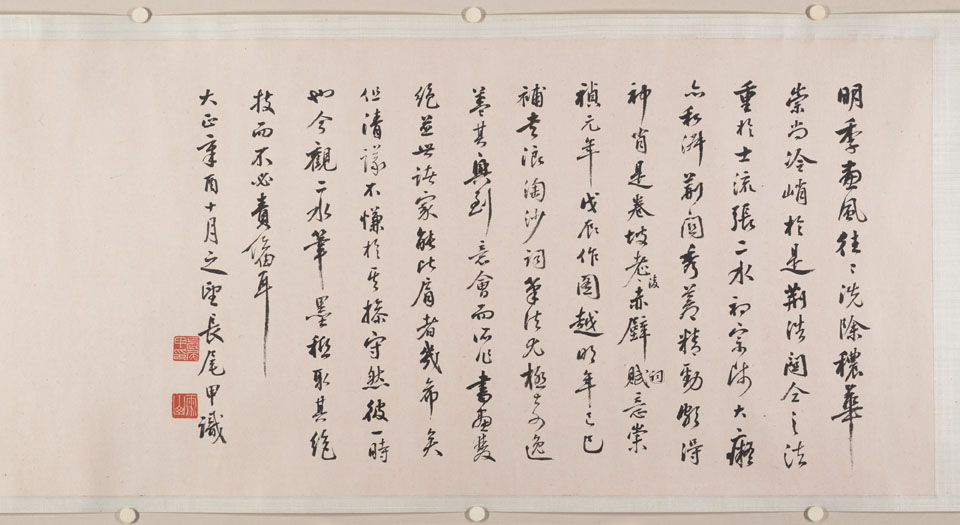 明季畫風往〻洗除穠華
崇尚冷峭於是荊浩關仝之法
重於士流張二水初宗陟大癡
亦私淑荊關秀蒼精勁頗得
神肖是卷坡老後赤壁賦詞意崇
禎元年戊辰作圖越明年己巳
補書浪淘沙詞筆法尤極奇逸
蓋其興到意會而所作書畫雙
絕並世諸家能比肩者幾希矣
但清議不慊於其操守然彼一時
也今觀二水筆墨祗取其絕
技而不必責備耳
大正辛酉十月之望長尾甲識